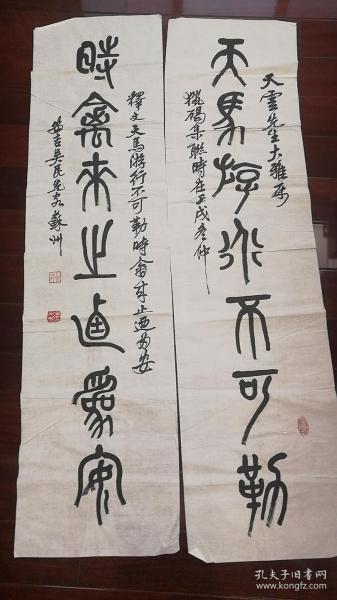 天雲先生大雅屬
天馬游行不可勒
獵碣集聯時在壬戌冬仲
釋文天馬游行不可勒時禽來止適為安
時禽來止適為安
安吉吳民先客蘇州
孔夫子旧书网